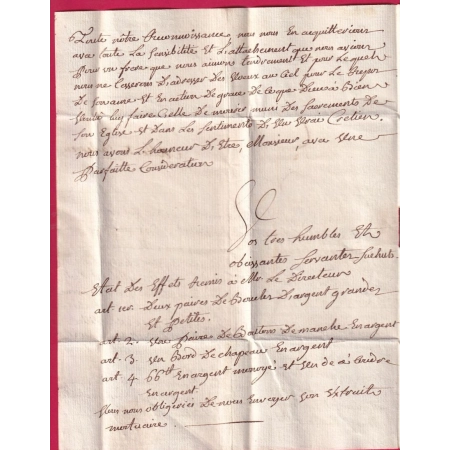 Toute nôtre Reconnoissance, nous nous En acquitterions
avec toute La Sensibilité Et L'attachement que nous avions
Pour un frere que nous aimons tendrement Et pour Lequel
nous ne Cesserons D'adresser Des Voeux au Ciel pour Le Repos
De Son ame Et En action De grace De ce que Dieu a Bien
Voulu luy faire Celle De mourir muni Des Sacrements De
Son Eglise Et Dans Les Sentiments D'un Vrai Cretien.
nous avons L'honneur D'Etre, Monsieur, avec Une
Parfaitte Consideration
Vos tres humbles Et
obeissantes Servantes
Etat Des Effets Remis à Mr. Le Directeur
art 1er. Deux paires De Boucles D'argent grandes
Et Petites.
art. 2. Une Paire De Boutons De manche En argent
art. 3. Un Bord De chapeau En argent
art. 4. 66tt En argent monoyé Et Un de à Coudre
En argent
Vous nous obligeriés De nous Envoyer Son Extrait
mortuaire.